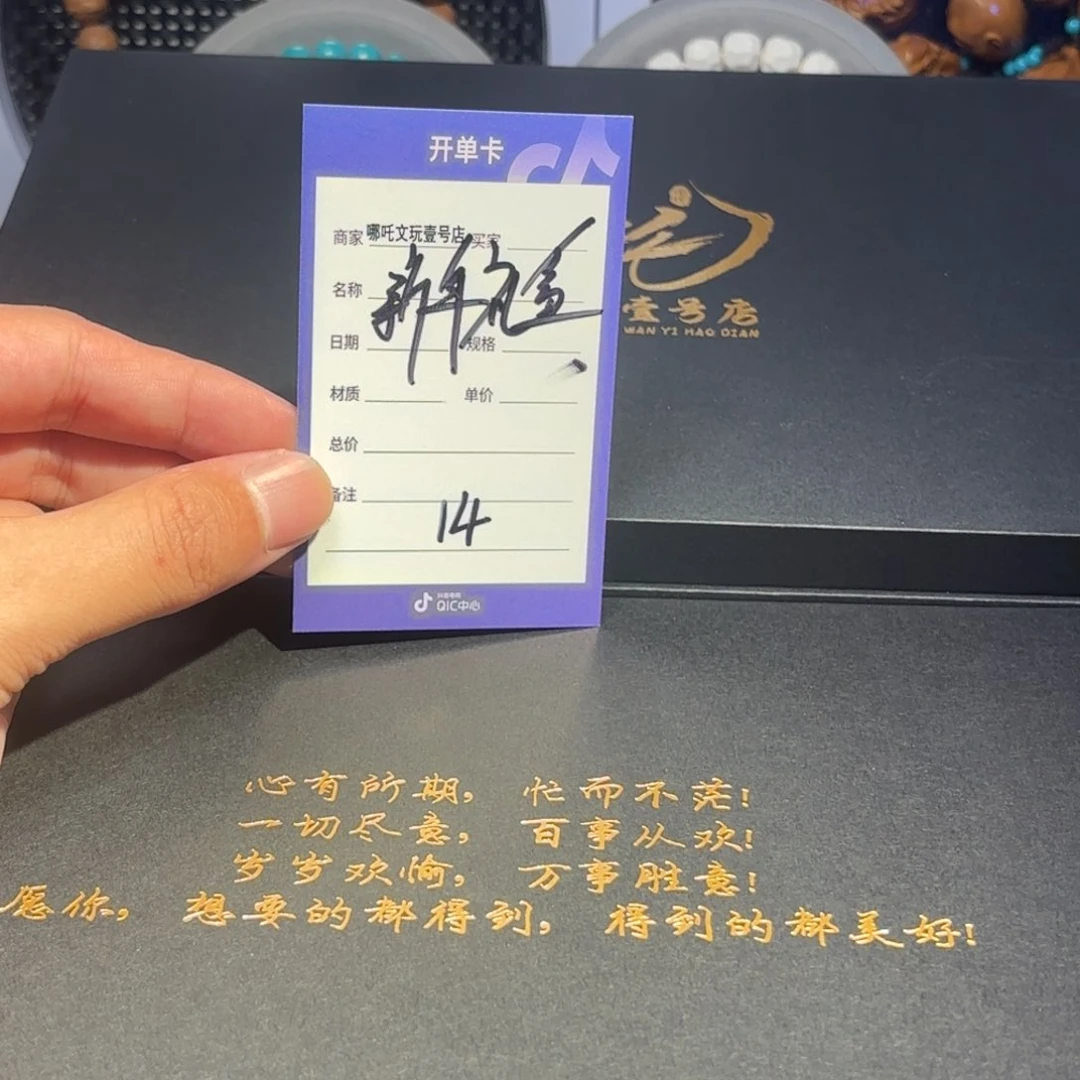 开单卡
商家 哪吒文玩壹号店 买家
名称
新年礼盒
日期 规格
材质 单价
总价
备注
14
抖音电商
QIC中心
壹号店
WAN YI HAO DIAN
心有所期，忙而不茫！
一切尽意，百事从欢！
岁岁欢愉，万事胜意！
愿你，想要的都得到，得到的都美好！